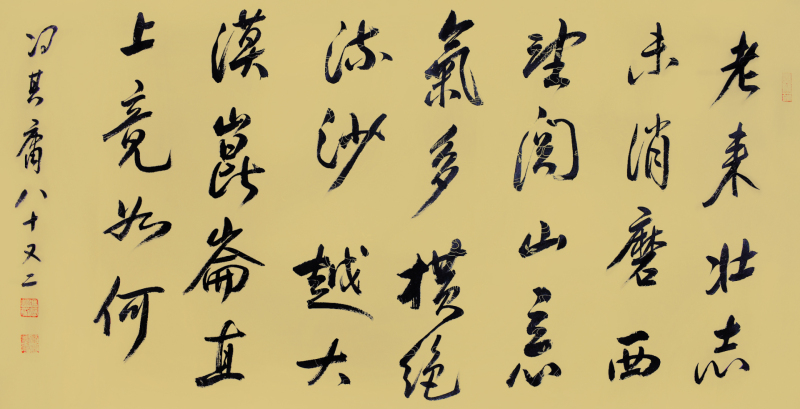 老来壮志
未消磨西
望関山意
氣多横绝
流沙越大
漠崑崙直
上竟如何
冯其庸八十又二